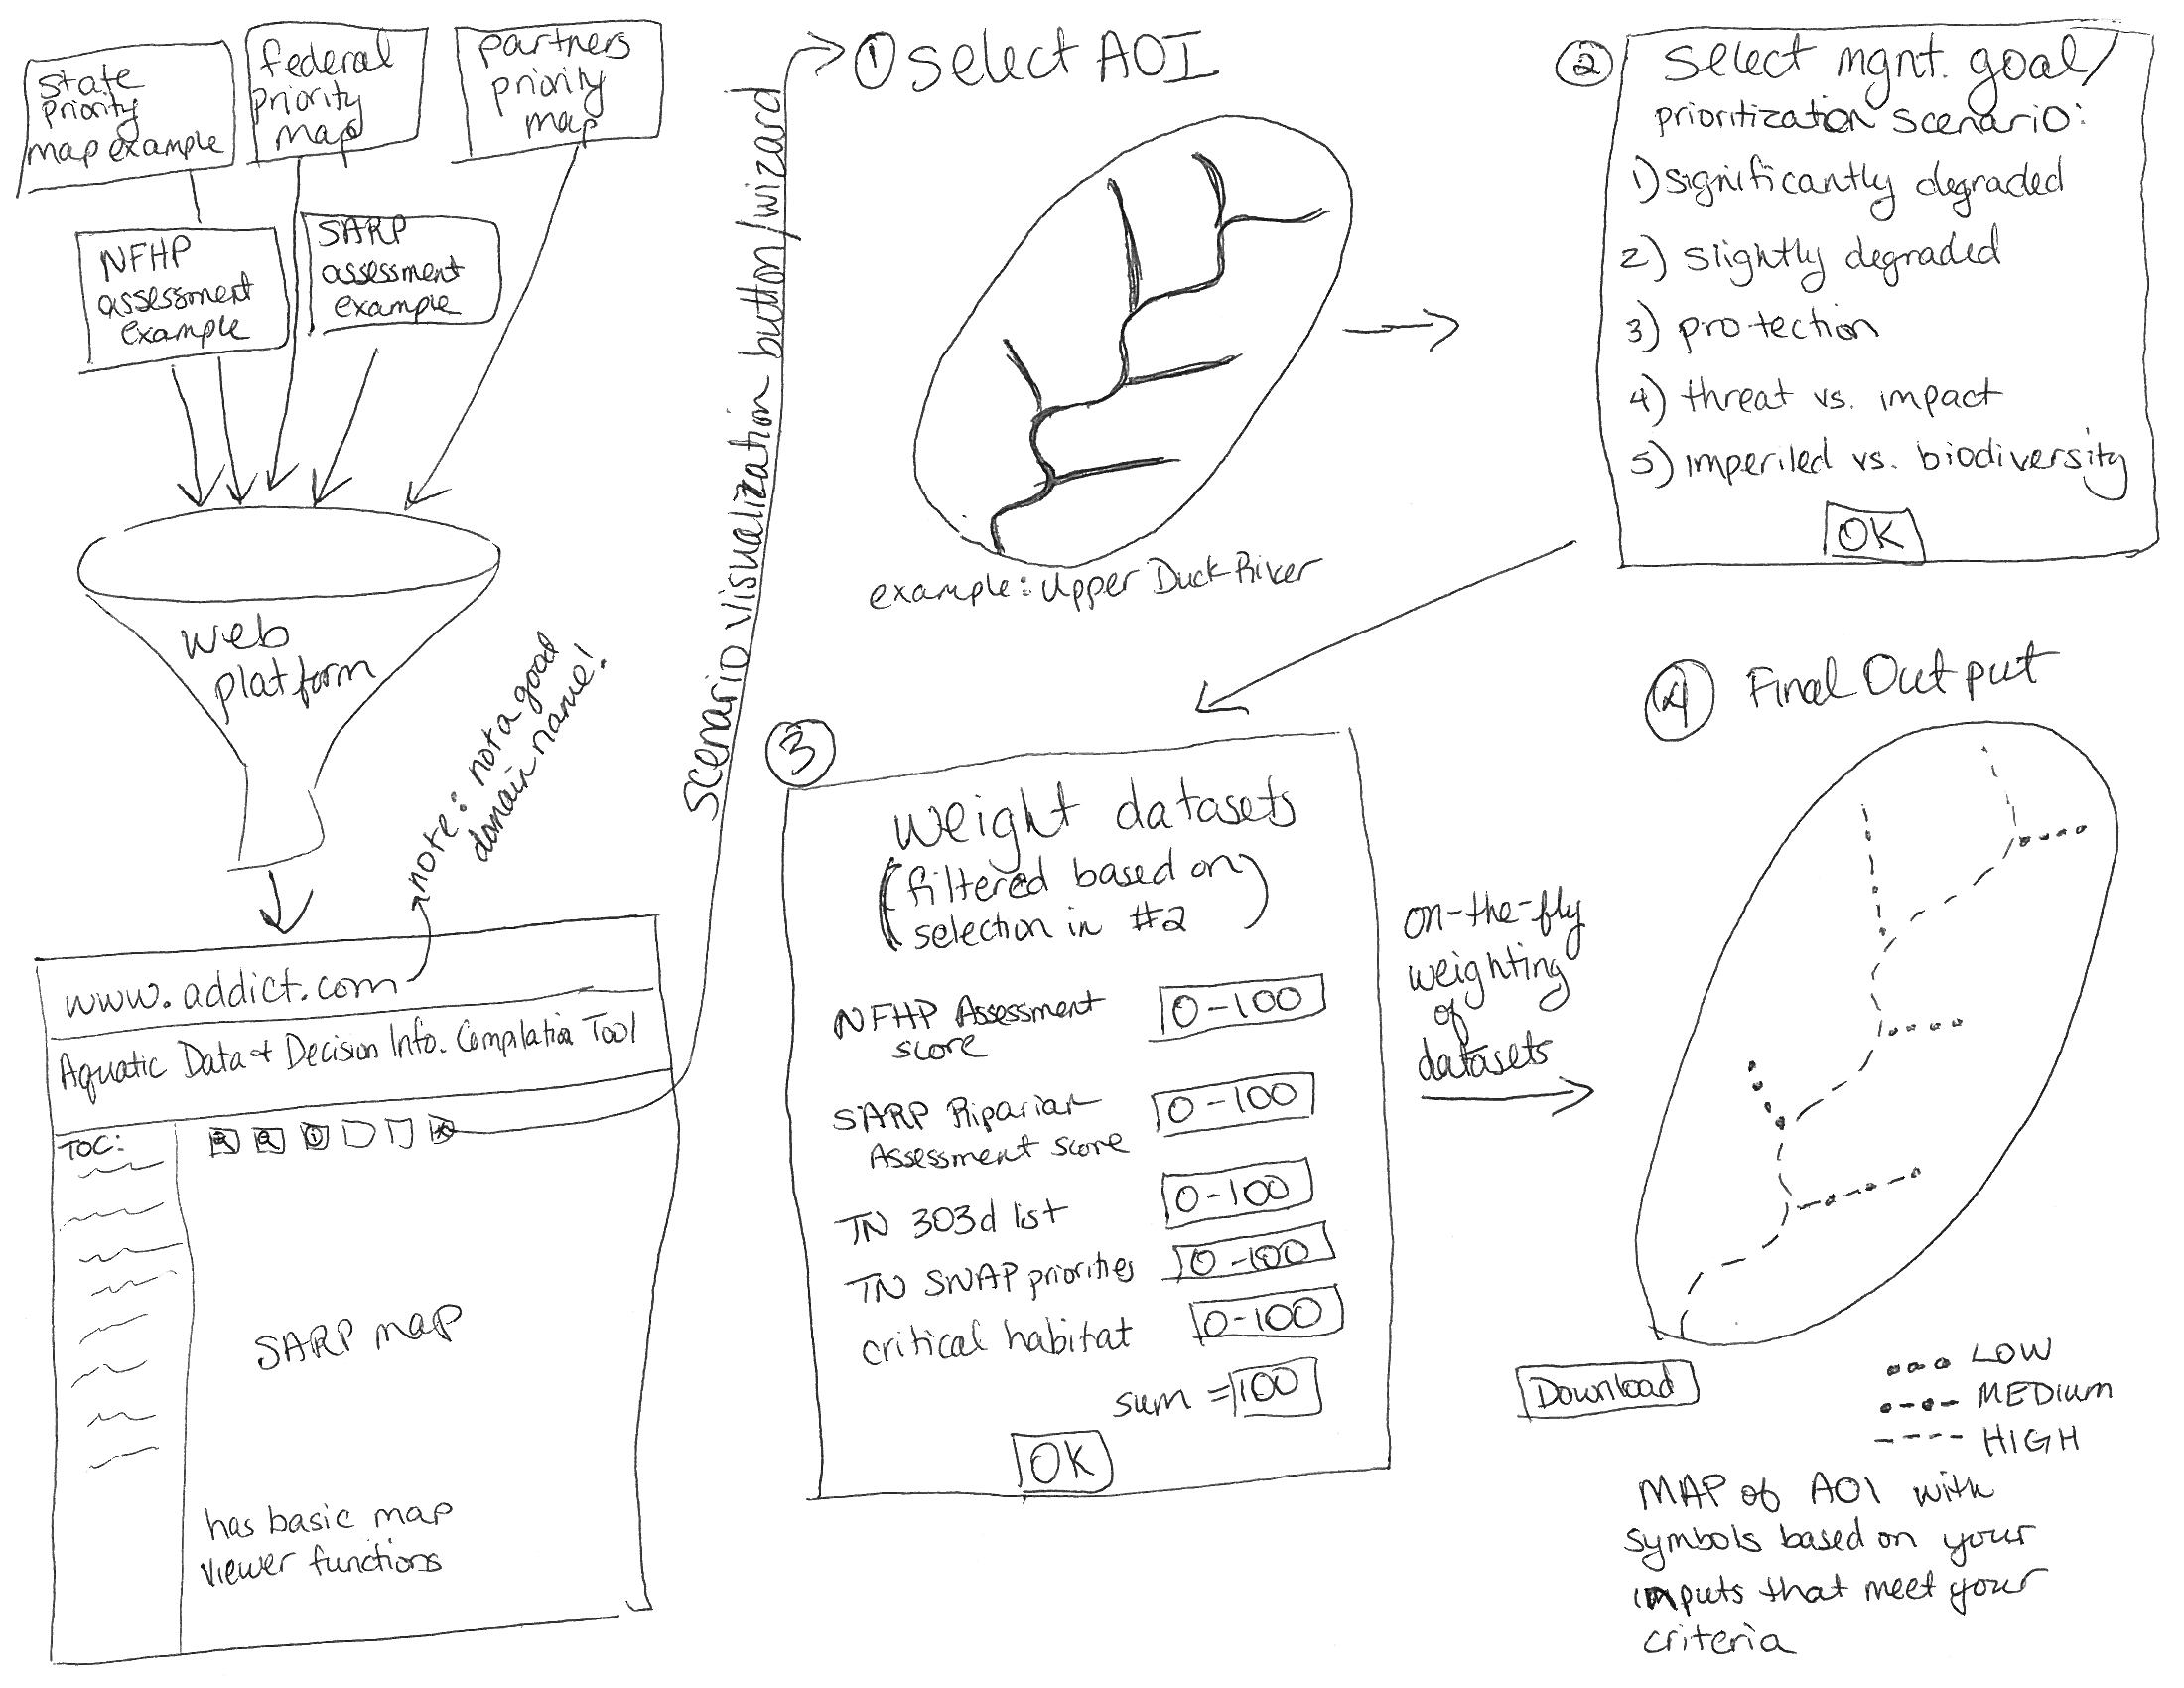 state
priority
map example
federal
priority
map
partners
priority
map
NFHP
assessment
example
SARP
assessment
example
web
platform
note: not a good
domain name!
www.addict.com
Aquatic Data & Decision Info. Compilation Tool
TOC:
SARP map
has basic map
viewer functions
scenario visualization button/wizard
① select AOI
example: Upper Duck River
② select mgnt. goal/
prioritization scenario:
1) significantly degraded
2) slightly degraded
3) protection
4) threat vs. impact
5) imperiled vs. biodiversity
OK
③
weight datasets
(filtered based on
selection in #2)
NFHP Assessment 0-100
score
SARP Riparian 0-100
Assessment score
TN 303d list 0-100
TN SWAP priorities 0-100
critical habitat 0-100
sum = 100
OK
on-the-fly
weighting
of
datasets
④ Final Output
Download
LOW
MEDIUM
HIGH
MAP of AOI with
symbols based on your
inputs that meet your
criteria